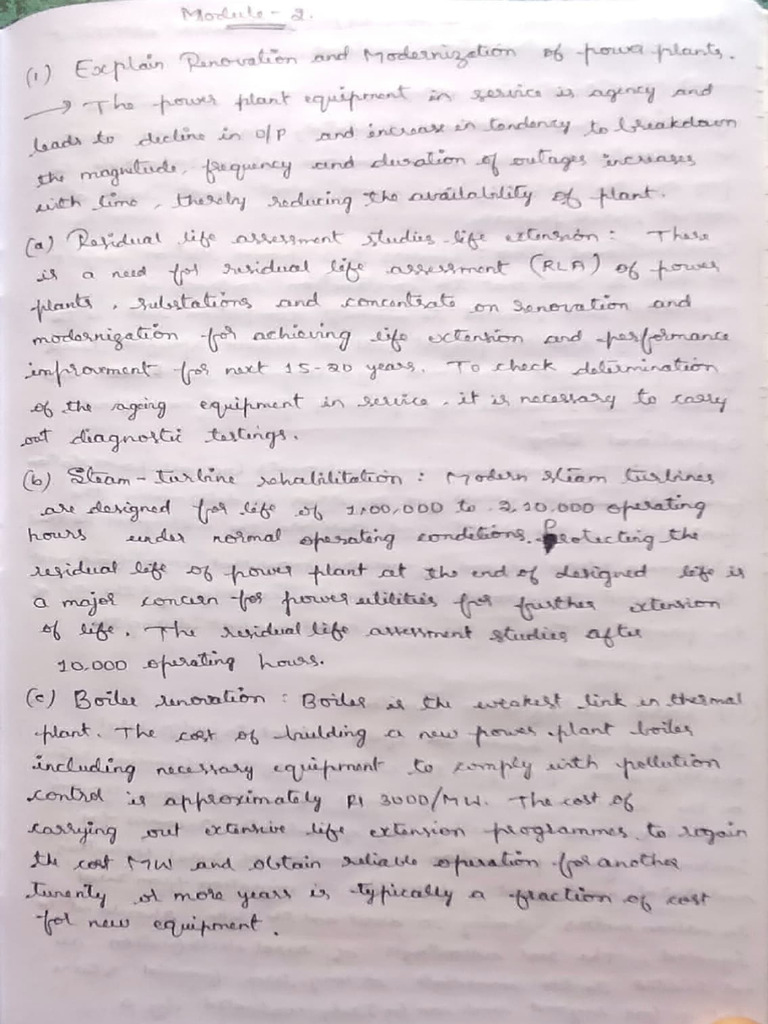 Module - 2.
(1) Explain Renovation and Modernization of power plants.
→ The power plant equipment in service is agency and
leads to decline in O/P and increase in tendency to breakdown
the magnitude, frequency and duration of outages increases
with time, thereby reducing the availability of plant.
(a) Residual life assessment studies life extension: There
is a need for residual life assessment (RLA) of power
plants, substations and concentrate on renovation and
modernization for achieving life extension and performance
improvment for next 15-20 years. To check determination
of the ageing equipment in service, it is necessary to carry
out diagnostic testings.
(b) Steam-turbine rehabilitation: Modern steam turbines
are designed for life of 1,00,000 to 2,10,000 operating
hours under normal operating conditions. Protecting the
residual life of power plant at the end of designed life is
a major concern for power utilities for further extension
of life. The residual life assessment studies after
10,000 operating hours.
(c) Boiler renovation: Boiler is the weakest link in thermal
plant. The cost of building a new power plant boiler
including necessary equipment to comply with pollution
control is approximately 3000/MW. The cost of
carrying out extensive life extension programmes to regain
the cost MW and obtain reliable operation for another
twenty or more years is typically a fraction of cost
for new equipment.